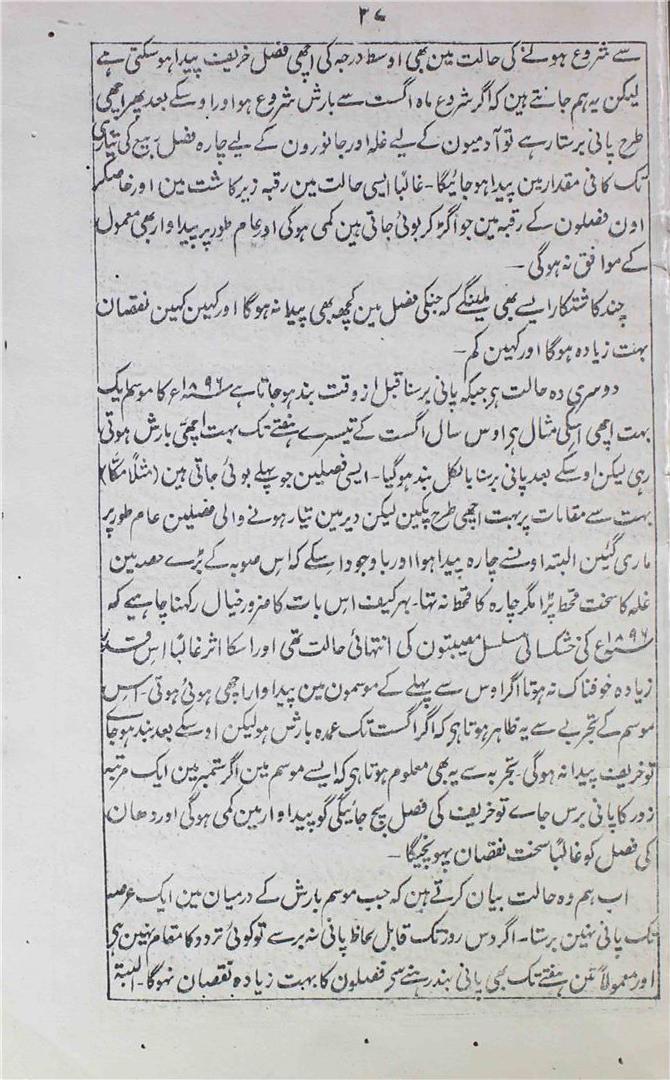 ۳۷
سے شروع ہونے کی حالت مین بھی اوسط درجہ کی اچھی فصل خریف پیدا ہوسکتی ہے
لیکن یہ ہم جانتے ہین کہ اگر شروع ماہ اگست سے بارش شروع ہو اور اوسکے بعد پھر اچھی
طرح پانی برستا رہے تو آدمیون کے لیے غلہ اور جانورون کے لیے چارہ فصل ربیع کی تیاری
تک کافی مقدار مین پیدا ہوجائیگا۔ غالباً ایسی حالت مین رقبہ زیر کاشت مین اور خاصکر
اون فصلون کے رقبہ مین جو اگڑ کر بوئی جاتی ہین کمی ہوگی اور عام طور پر پیداوار بھی معمول
کے موافق نہ ہوگی ۔
چند کاشتکار ایسے بھی ملینگے کہ جنکی فصل مین کچھ بھی پیدا نہ ہوگا اور کہین کہین نقصان
بہت زیادہ ہوگا اور کہین کم ۔
دوسری وہ حالت ہی جبکہ پانی برسنا قبل از وقت بند ہوجاتا ہے ۱۸۹۶ع کا موسم ایک
بہت اچھی اسکی مثال ہی اوس سال اگست کے تیسرے ہفتے تک بہت اچھی بارش ہوتی
رہی لیکن اوسکے بعد پانی برسنا بالکل بند ہوگیا۔ ایسی فصلین جو پہلے بوئی جاتی ہین (مثلاً مکّا)
بہت سے مقامات پر بہت اچھی طرح پکین لیکن دیر مین تیار ہونے والی فصلین عام طور پر
ماری گئین البتہ اونسے چارہ پیدا ہوا اور باوجود اسکے کہ اس صوبہ کے بڑے حصہ مین
غلہ کا سخت قحط پڑا مگر چارہ کا قحط نہ تھا۔ بہرکیف اس بات کا ضرور خیال رکھنا چاہیے کہ
۱۸۹۶ع کی خشکسالی مسلسل مصیبتون کی انتہائی حالت تھی اور اسکا اثر غالباً اس قدر
زیادہ خوفناک نہ ہوتا اگر اوس سے پہلے کے موسمون مین پیداوار اچھی ہوئی ہوتی۔ اس
موسم کے تجربے سے یہ ظاہر ہوتا ہی کہ اگر اگست تک عمدہ بارش ہو لیکن اوسکے بعد بند ہوجاے
تو خریف پیدا نہ ہوگی۔ تجربہ سے یہ بھی معلوم ہوتا ہی کہ ایسے موسم مین اگر ستمبر مین ایک مرتبہ
زور کا پانی برس جاے تو خریف کی فصل بچ جائیگی گو پیداوار مین کمی ہوگی اور دھان
کی فصل کو غالباً سخت نقصان پہونچیگا ۔
اب ہم وہ حالت بیان کرتے ہین کہ جب موسم بارش کے درمیان مین ایک عرصہ
تک پانی نہین برستا۔ اگر دس روز تک قابل لحاظ پانی نہ برسے تو کوئی تردد کا مقام نہین ہی
اور معمولاً تین ہفتے تک بھی پانی بند رہنے سے فصلون کا بہت زیادہ نقصان نہوگا۔ البتہ